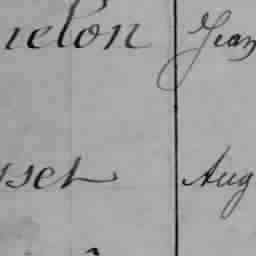 uelon Jean
sset Aug